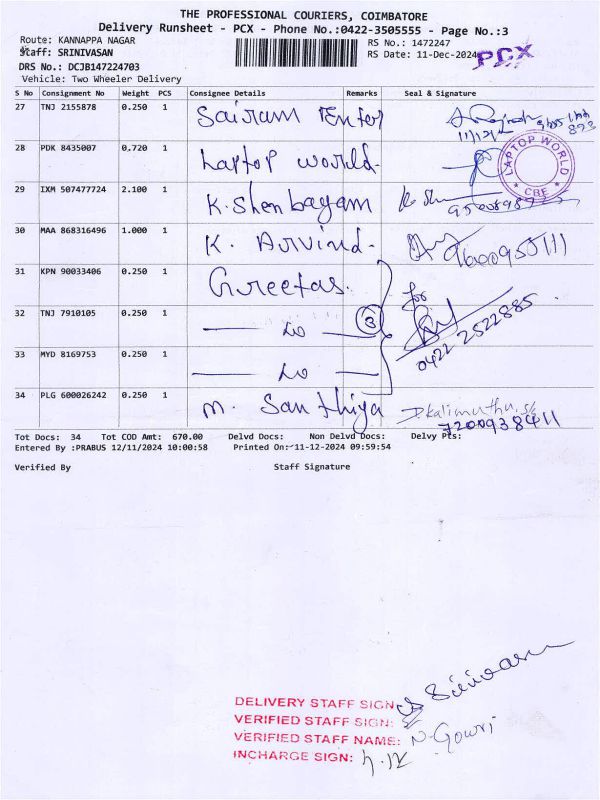 THE PROFESSIONAL COURIERS, COIMBATORE
Delivery Runsheet - PCX - Phone No.:0422-3505555 - Page No.:3
Route: KANNAPPA NAGAR
Staff: SRINIVASAN
DRS No.: DCJB147224703
Vehicle: Two Wheeler Delivery
RS No.: 1472247
RS Date: 11-Dec-2024
PCX
S No Consignment No Weight PCS Consignee Details Remarks Seal & Signature
27 TNJ 2155878 0.250 1 Sairam Enter
11/12/24
28 PDK 8435007 0.720 1 Laptop world.
LAPTOP WORLD
CBE
29 IXM 507477724 2.100 1 K. Shenbagam
30 MAA 868316496 1.000 1 K. Arvind.
31 KPN 90033406 0.250 1 Greetas.
for
32 TNJ 7910105 0.250 1 — Do — 3
0422 2522885
33 MYD 8169753 0.250 1 — Do —
34 PLG 600026242 0.250 1 M. Santhiya D. Kalimuthu
7200938411
Tot Docs: 34 Tot COD Amt: 670.00 Delvd Docs: Non Delvd Docs: Delvy Pts:
Entered By :PRABUS 12/11/2024 10:00:58 Printed On:-11-12-2024 09:59:54
Verified By Staff Signature
DELIVERY STAFF SIGN: Srinivasan
VERIFIED STAFF SIGN:
VERIFIED STAFF NAME: N. Gowri
INCHARGE SIGN: